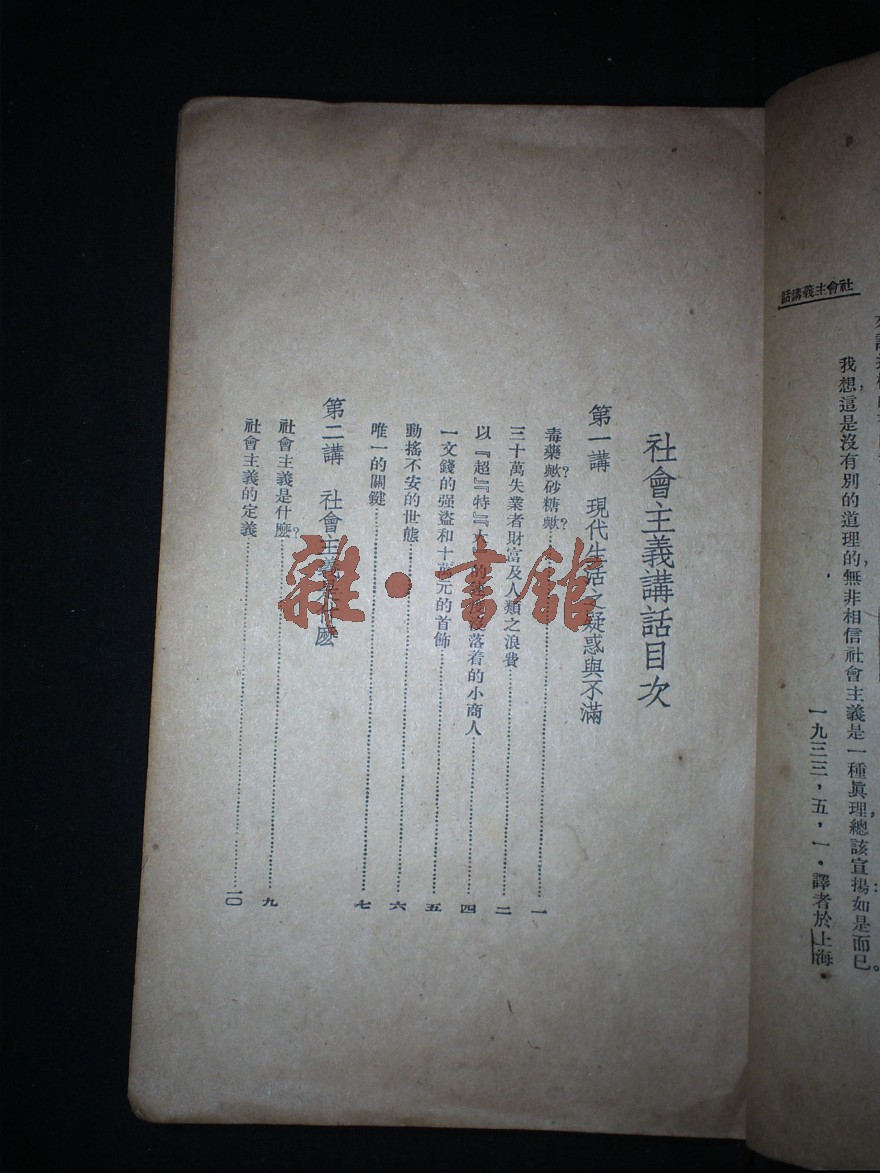 社會主義講話
我想這是沒有別的道理的，無非相信社會主義是一種眞理，總該宣揚：如是而已。
一九三三，五，一・譯者於上海
社會主義講話目次
第一講　現代生活之疑惑與不滿
毒藥歟？砂糖歟？………一
三十萬失業者財富及人類之浪費………二
以『超』『特』『大』的沒落着的小商人………四
一文錢的强盜和十萬元的首飾………五
動搖不安的世態………六
唯一的關鍵………七
第二講　社會主義是什麼
社會主義是什麼？………九
社會主義的定義………一〇
雜・書館